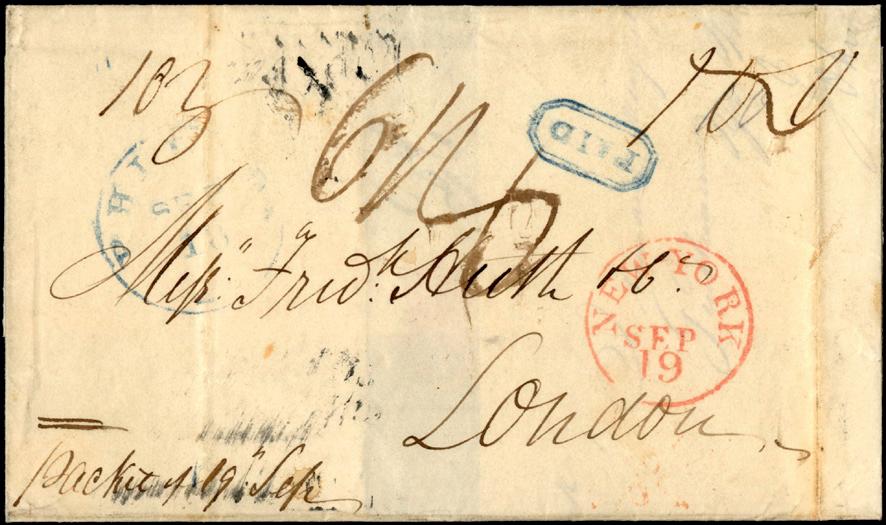 103
PAID
PHIL
SEP
18
Messrs. Fredk. Huth & Co.
NEW YORK
SEP
19
London
Packet of 19th Sep